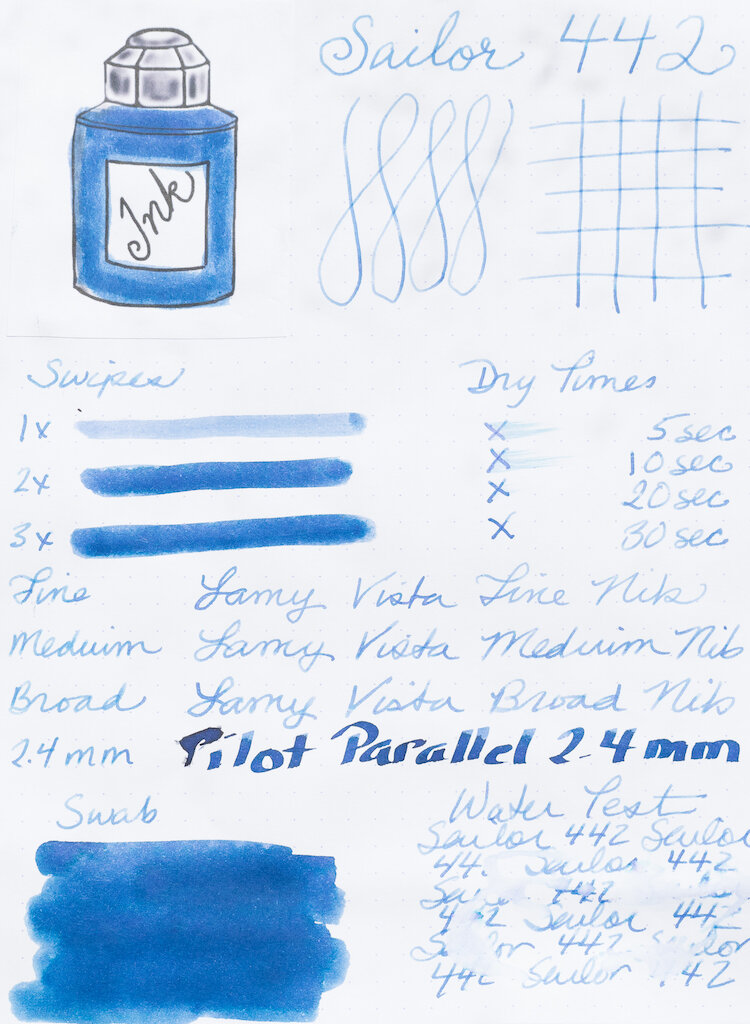 Sailor 442
Ink
Swipes
Dry Times
1x
5 sec
2x
10 sec
20 sec
3x
30 sec
Fine Lamy Vista Fine Nib
Meduim Lamy Vista Meduim Nib
Broad Lamy Vista Broad Nib
2.4 mm Pilot Parallel 2.4 mm
Swab
Water Test
Sailor 442 Sailor
44 Sailor 442
Sai 442
4 2 Sailor 442
S lor 442 S lor
442 Sailor 42